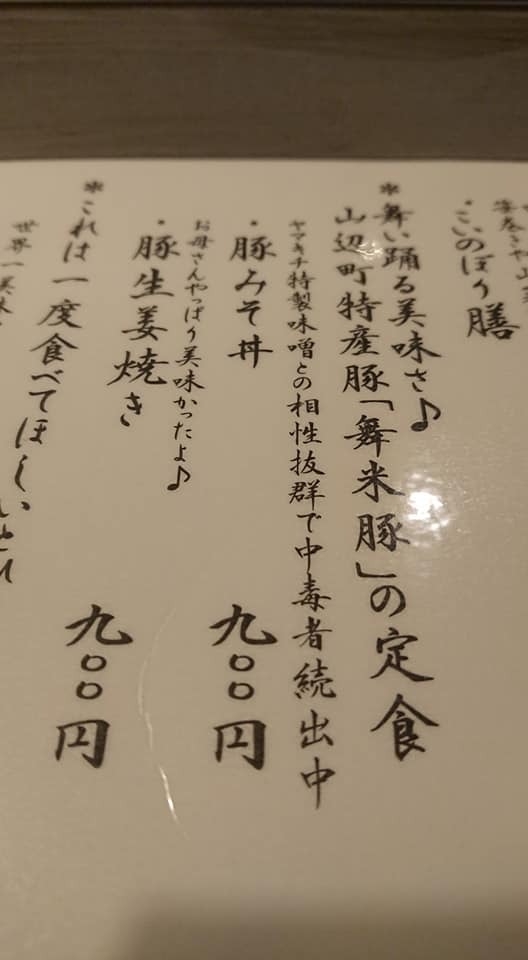 ・こいのぼり膳
＊舞い踊る美味さ♪
山辺町特産豚「舞米豚」の定食
ヤマキチ特製味噌との相性抜群で中毒者続出中
・豚みそ丼 九〇〇円
お母さんやっぱり美味かったよ♪
・豚生姜焼き 九〇〇円
＊これは一度食べてほしい
世界一美味